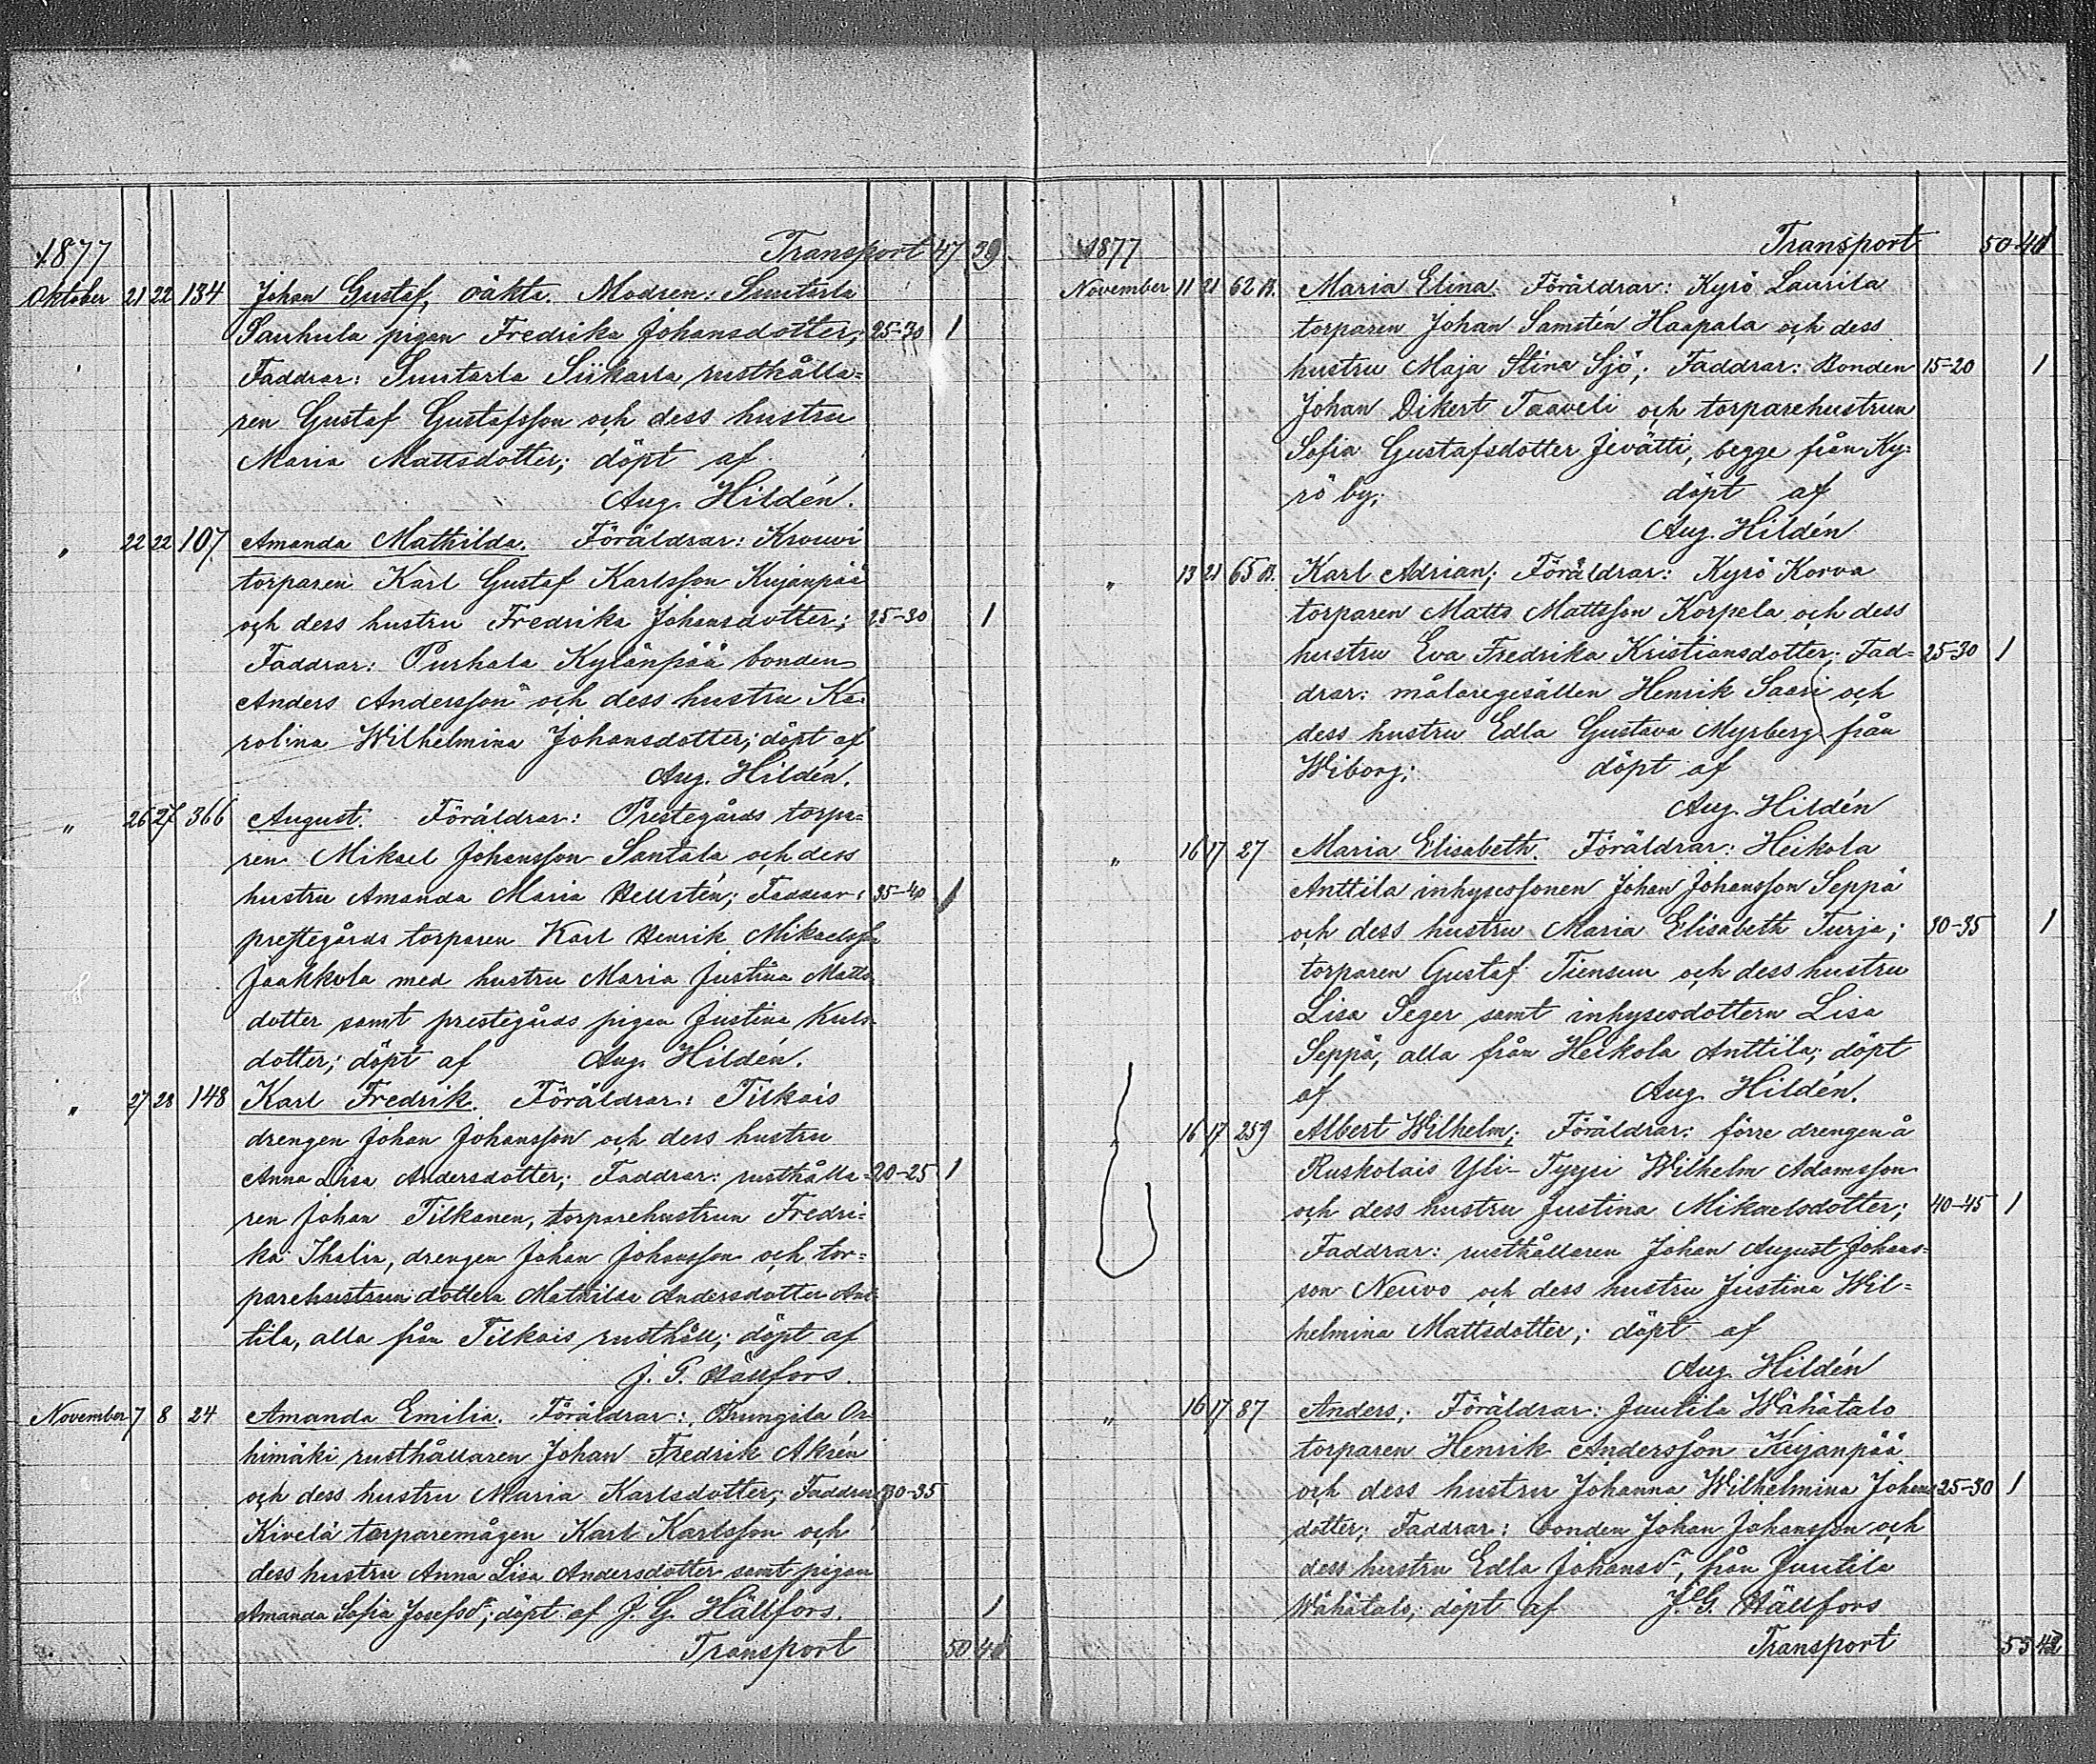 1877 Transport 47 39
Oktober 21 22 134 Johan Gustaf, oäkta. Modren: Suutarla
Sauhula pigan Fredrika Johansdotter; 25-30 1
Faddrar: Suutarla Siikarla rusthålla=
ren Gustaf Gustafsson och dess hustru
Maria Mattsdotter; döpt af
Aug. Hildén.
" 22 22 107 Amanda Mathilda. Föräldrar: Krouvi
torparen Karl Gustaf Karlsson Kujanpää
och dess hustru Fredrika Johansdotter; 25-30 1
Faddrar: Purhala Kylänpää bonden
Anders Andersson och dess hustru Ka-
rolina Wilhelmina Johansdotter; döpt af
Aug. Hildén.
" 26 27 366 August. Föräldrar: Prestegårds torpa=
ren Mikael Johansson Santala och dess
hustru Amanda Maria Hellstén; Faddrar: 35-40 1
prestegårds torparen Karl Henrik Mikaelsson
Jaakkola med hustru Maria Justina Matts-
dotter samt prestegårds pigan Justina
dotter; döpt af Aug. Hildén.
" 27 28 148 Karl Fredrik. Föräldrar: Tilkais
drengen Johan Johansson och dess hustru
Anna Lisa Andersdotter; Faddrar: rusthålla= 20-25 1
ren Johan Tilkanen, torparehustrun Fredri=
ka Thalin, drengen Johan Johansson och tor=
parehustrun dottern Mathilda Andersdotter Ant-
tila, alla från Tilkais rusthåll; döpt af
J. G. Hällfors.
November 7 8 24 Amanda Emilia. Föräldrar: Brungila Or-
himäki rusthållaren Johan Fredrik Akrén
och dess hustru Maria Karlsdotter; Faddrar 30-35
Kivelä torparemågen Karl Karlsson och
dess hustru Anna Lisa Andersdotter samt pigan
Amanda Sofia Josefsdr; döpt af J. G. Hällfors. 1
Transport 50 41
1877 Transport 50 41
November 11 21 62 B. Maria Elina. Föräldrar: Kyrö Laurila
torparen Johan Samstén Haapala och dess
hustru Maja Stina Sjö; Faddrar: Bonden 15-20 1
Johan Dikert Taaveli och torparehustrun
Sofia Gustafsdotter Jevätti, begge från Ky-
rö by; döpt af
Aug. Hildén
" 13 21 65 B. Karl Adrian; Föräldrar: Kyrö Korva
torparen Matts Mattsson Korpela och dess
hustru Eva Fredrika Kristiansdotter; Fad= 25-30 1
drar: målaregesällen Henrik Saari och
dess hustru Edla Gustava Myrberg från
Wiborg; döpt af
Aug. Hildén
" 16 17 27 Maria Elisabeth. Föräldrar: Heikola
Anttila inhysessonen Johan Johansson Seppä
och dess hustru Maria Elisabeth Turja; 30-35 1
torparen Gustaf Tiensuu och dess hustru
Lisa Seger samt inhysesdottern Lisa
Seppä, alla från Heikola Anttila; döpt
af Aug. Hildén.
" 16 17 259 Albert Wilhelm; Föräldrar: förre drengen å
Ruskolais Yli-Tyyri Wilhelm Adamsson
och dess hustru Justina Mikaelsdotter; 40-45 1
Faddrar: rusthållaren Johan August Johans=
son Neuvo och dess hustru Justina Wil=
helmina Mattsdotter; döpt af
Aug. Hildén
" 16 17 87 Anders; Föräldrar: Juutila Wähätalo
torparen Henrik Andersson Kujanpää
och dess hustru Johanna Wilhelmina Johans 25-30 1
dotter; Faddrar: bonden Johan Johansson och
dess hustru Edla Johansdr, från Juutila
Wähätalo; döpt af J. G. Hällfors
Transport 53 43